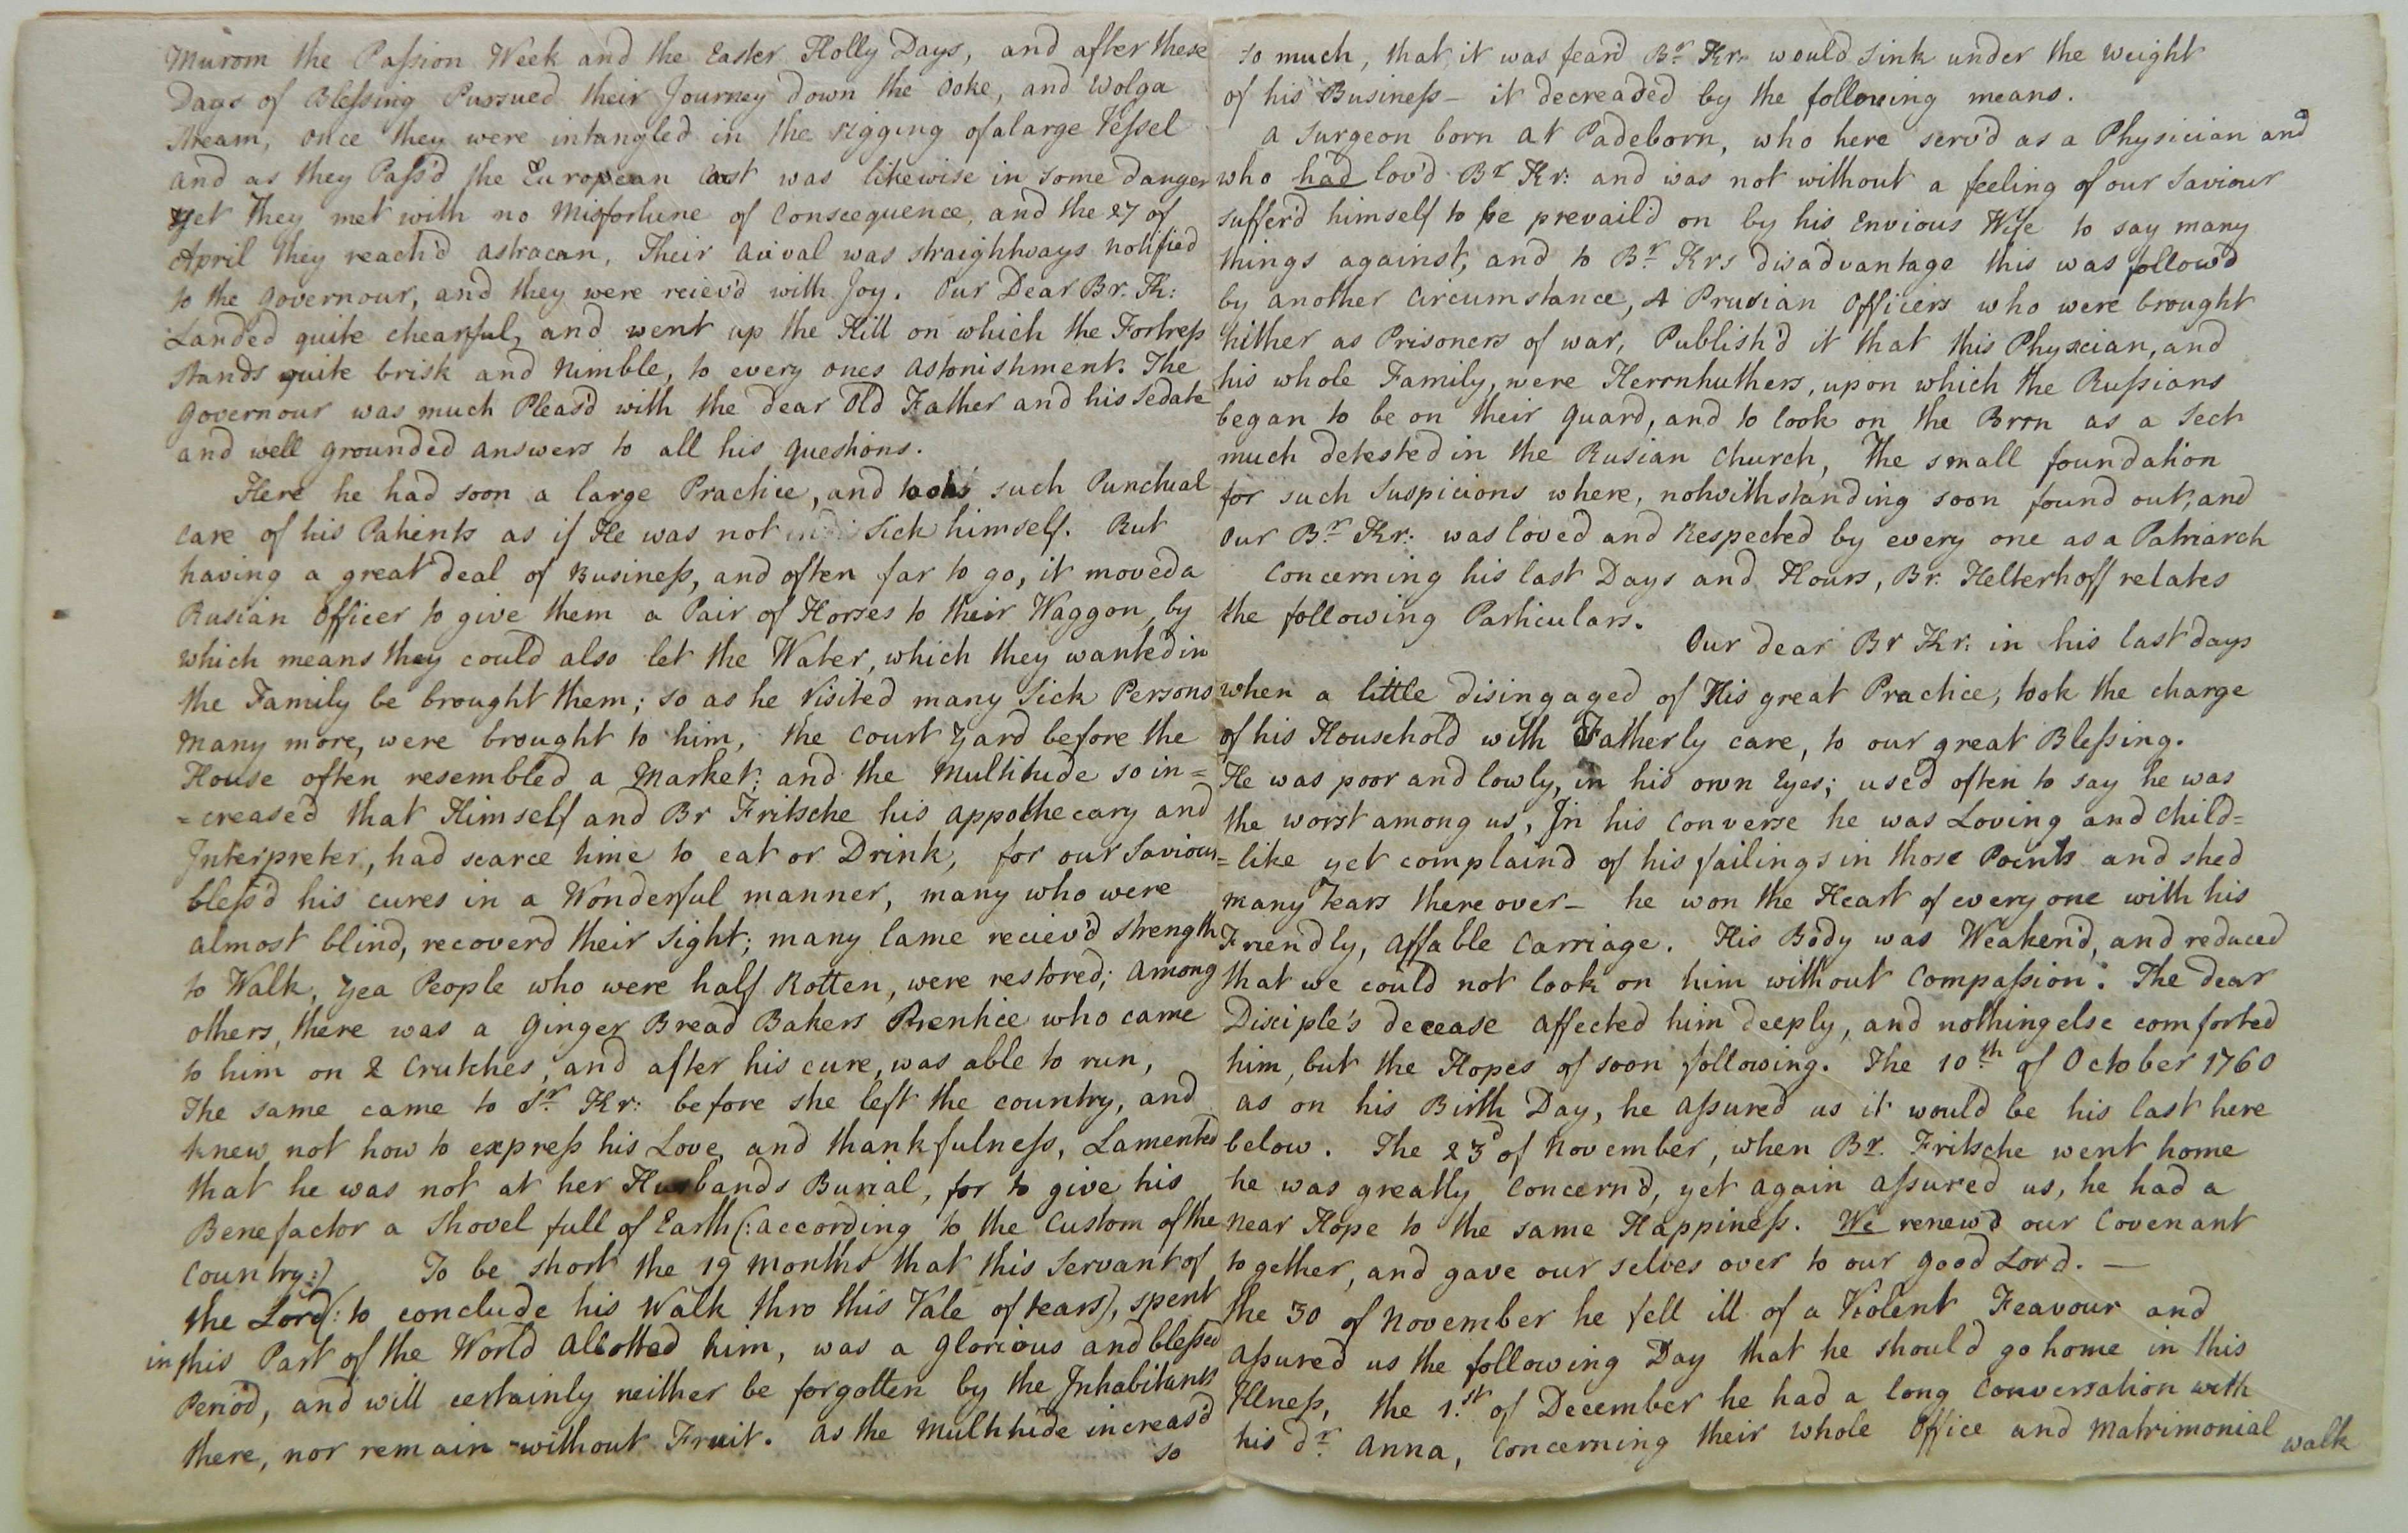 Murom the Paſsion Week and the Easter Holly Days, and after these
Days of Bleſsing Pursued their Journey down the Ooke, and Wolga
stream, once they were intangled in the rigging of a large Veſsel
and as they Paſs'd the European Cast was likewise in some danger
yet they met with no Misfortune of Conscequence, and the 27 of
April they reach'd astracan, Their arival was straightways notified
to the Governour, and they were reiev'd with Joy. Our Dear Br. Kr:
Landed quite chearful, and went up the Hill on which the Fortreſs
stands quite brisk and nimble, to every ones astonishment. The
Governour was much Pleas'd with the dear Old Father and his sedate
and well grounded answers to all his questions.
Here he had soon a large Practice, and took such Punctual
care of his Patients as if He was not sick himself. But
having a great deal of Buisneſs, and often far to go, it moved a
Rusian Officer to give them a Pair of Horses to their Waggon, by
which means they could also let the Water, which they wanted in
the Family be brought them; so as he Visited many Sick Persons
many more, were brought to him, the Court Yard before the
House often resembled a Market: and the Multitude so in=
=creased that Himself and Br Fritsche his appothecary and
Interpreter, had scarce time to eat or Drink, for our Saviour
bleſs'd his cures in a Wonderful manner, many who were
almost blind, recoverd their Sight; many lame reciev'd strength
to Walk, yea People who were half Rotten, were restored; among
others, there was a Ginger Bread Bakers Prentice who came
to him on 2 Crutches, and after his cure, was able to run,
The same came to Sr. Kr: before she left the country, and
knew not how to expreſs his Love, and thankfulneſs, Lamented
that he was not at her Husbands Burial, for to give his
Benefactor a Shovel full of Earth (:according to the Custom of the
Country:) To be short the 19 Months that this Servant of
the Lord (: to conclude his Walk thro this Vale of tears), spent
in this Part of the World allotted him, was a glorious and bleſsed
Period, and will certainly neither be forgotten by the Inhabitants
there, nor remain without Fruit. as the Multitude increas'd
so
so much, that it was fear'd Br. Kr. would sink under the weight
of his Businefs - it decreased by the following means.
a Surgeon born at Padeborn, who here serv'd as a Physician and
who had lov'd Br. Kr: and was not without a feeling of our Saviour
suffer'd himself to be prevail'd on by his Envious Wife to say many
things against, and to Br. Krs disadvantage this was follow'd
by another Circumstance, A Prusian Officers who were brought
hither as Prisoners of war, Publish'd it that this Physcian, and
his whole Family, were Herrnhuthers, upon which the Ruſsians
began to be on their guard, and to look on the Brrn as a Sect
much detested in the Rusian Church, The small foundation
for such Suspicions where, nohvithstanding soon found out, and
Our Br. Kr: was loved and Respected by every one as a Patriarch
Concerning his last Days and Hours, Br. Helterhoff relates
the following Particulars.
Our dear Br Kr: in his last days
when a little disingaged of His great Practice, took the charge
of his Household with Fatherly care, to our great Bleſsing.
He was poor and lowly, in his own Eyes; used often to say he was
the worst among us, In his Converse he was Loving and Child=
=like yet complain'd of his failings in those Points and shed
many Tears there over - he won the Heart of every one with his
Friendly, affable Carriage. His Body was Weaken'd, and reduced
that we could not look on him without Compaſsion. The dear
Disciple's decease affected him deeply, and nothing else comforted
him, but the Hopes of soon following. The 10th of October 1760
as on his Birth Day, he aſsured us it would be his last here
below. The 23d of November, when Br. Fritsche went home
he was greatly Concern'd, yet again aſsured us, he had a
near Hope to the same Happineſs. We renew'd our Covenant
together, and gave our selves over to our good Lord. —
the 30 of November he fell ill of a Violent Feavour and
aſsured us the following Day that he should go home in this
Illneſs, the 1st. of December he had a long Conversation with
his dr. Anna, Concerning their whole Office and Matrimonial
walk